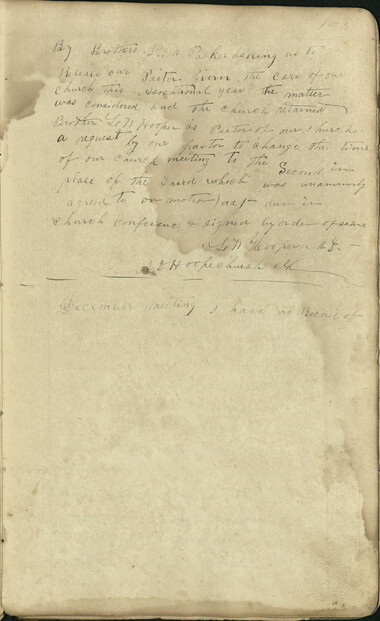 By Brothers Parker asking us to
Release our Pastor from the care of our
church this Associational year the matter
was considered and the church retained
Brother Hooper as Pastor of our church
a request by our pastor to change the time
of our church meeting to the Second in
place of the Third which was unanimously
agreed to on motion done in
church conference & signed by order of same
Hooper M
Hoope church clk
December meeting I have no Record of